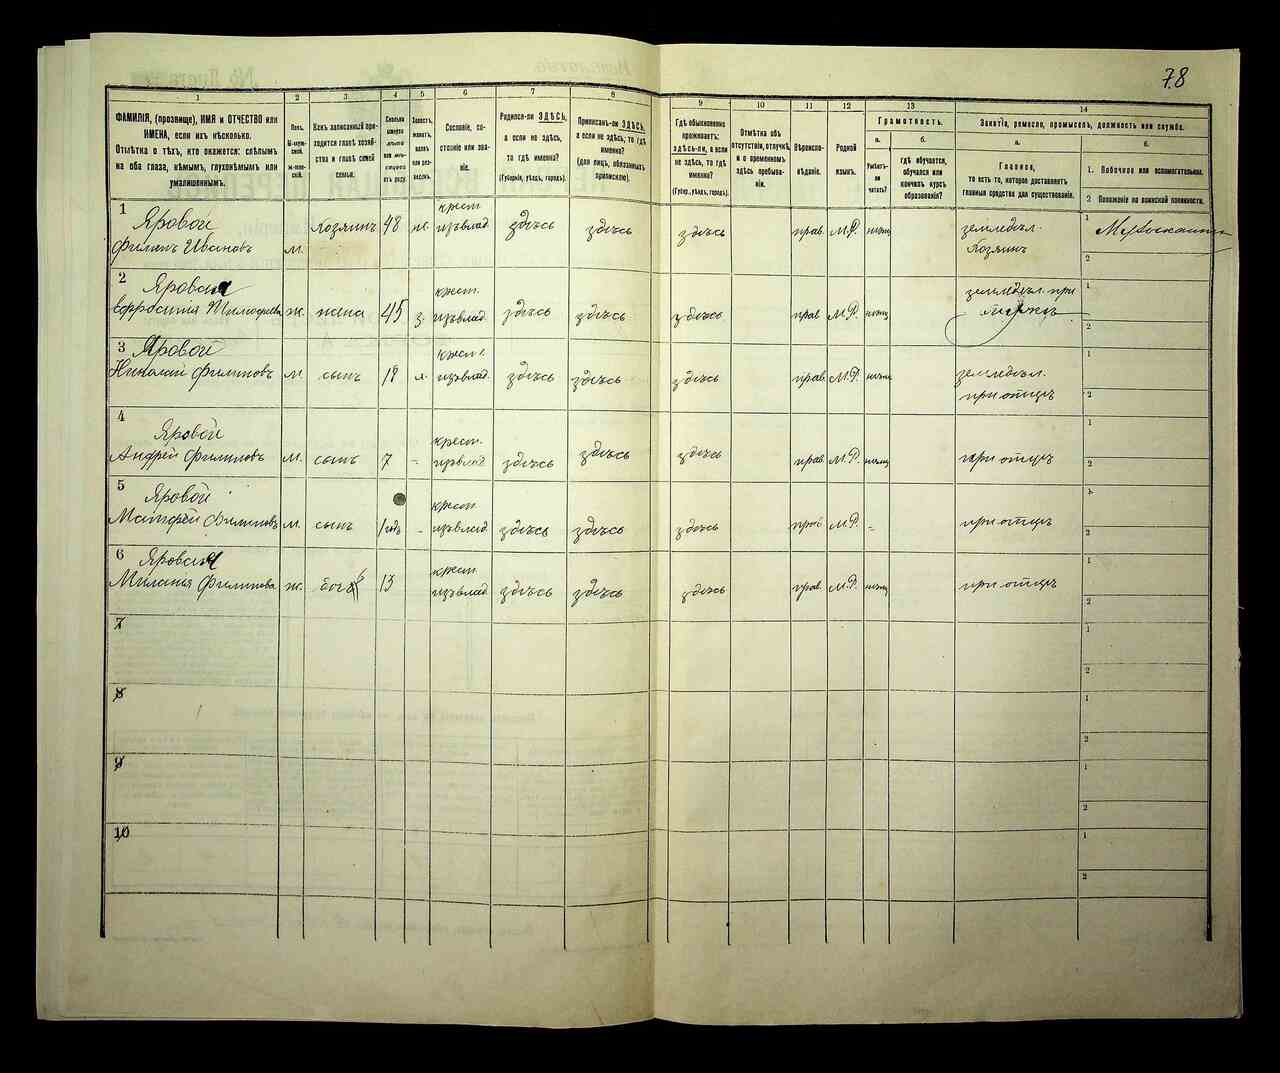 78
1 2 3 4 5 6 7 8 9 10 11 12 13 14
ФАМИЛІЯ, (прозвище), ИМЯ и ОТЧЕСТВО или
ИМЕНА, если ихъ нѣсколько.
Отмѣтка о тѣхъ, кто окажется: слѣпымъ
на оба глаза, нѣмымъ, глухонѣмымъ или
умалишеннымъ.
Полъ.
М-муж-
ской.
Ж-женс-
кій.
Какъ записанный при-
ходится главѣ хозяй-
ства и главѣ своей
семьи.
Сколько
минуло
лѣтъ
или мѣ-
сяцевъ
отъ роду.
Сословіе, со-
стояніе или зва-
ніе.
Родился-ли ЗДѢСЬ,
а если не здѣсь,
то гдѣ именно?
(Губернія, уѣздъ, городъ).
Приписанъ-ли ЗДѢСЬ,
а если не здѣсь, то гдѣ
именно?
(для лицъ, обязанныхъ
припискою).
Гдѣ обыкновенно
проживаетъ:
здѣсь-ли, а если
не здѣсь, то гдѣ
именно?
(Губер., уѣздъ, городъ).
Отмѣтка объ
отсутствіи, отлучкѣ
и о временномъ
здѣсь пребыва-
ніи.
Вѣроиспо-
вѣданіе.
Родной
языкъ.
Грамотность.
а.
Умѣетъ-
ли
читать?
б.
гдѣ обучается,
обучался или
кончилъ курсъ
образованія?
Занятія, ремесло, промыселъ, должность или служба.
а.
Главное,
то есть то, которое доставляетъ
главныя средства для существованія.
б.
1. Побочное или вспомогательное.
2 Положеніе по воинской повинности.
1 Яровой
Филипъ Ивановъ м. Хозяинъ 48 ж. крест. изъ влад. здѣсь здѣсь здѣсь прав. М.Р. землeдѣл.
Хозяинъ
1
2
2 Яровая
Ефросинія Тимофеева ж. жена 45 з. крест. изъ влад. здѣсь здѣсь здѣсь прав. М.Р. земледѣл. при
мужѣ
1
2
3 Яровой
Николай Филиповъ м. сынъ 18 крест. изъ влад. здѣсь здѣсь здѣсь прав. М.Р. земледѣл.
при отцѣ
1
2
4
Яровой
Андрей Филиповъ м. сынъ 7 - крест. изъ влад. здѣсь здѣсь здѣсь прав. М.Р. при отцѣ
1
2
5 Яровой
Матфей Филиповъ м. сынъ 1 годъ - крест. изъ влад. здѣсь здѣсь здѣсь прав. М.Р. - при отцѣ
1
2
6 Яровая
Миланья Филипова ж. 13 крест. изъ влад. здѣсь здѣсь здѣсь прав. М.Р. при отцѣ
1
2
7
1
2
8
1
2
9
1
2
10
1
2